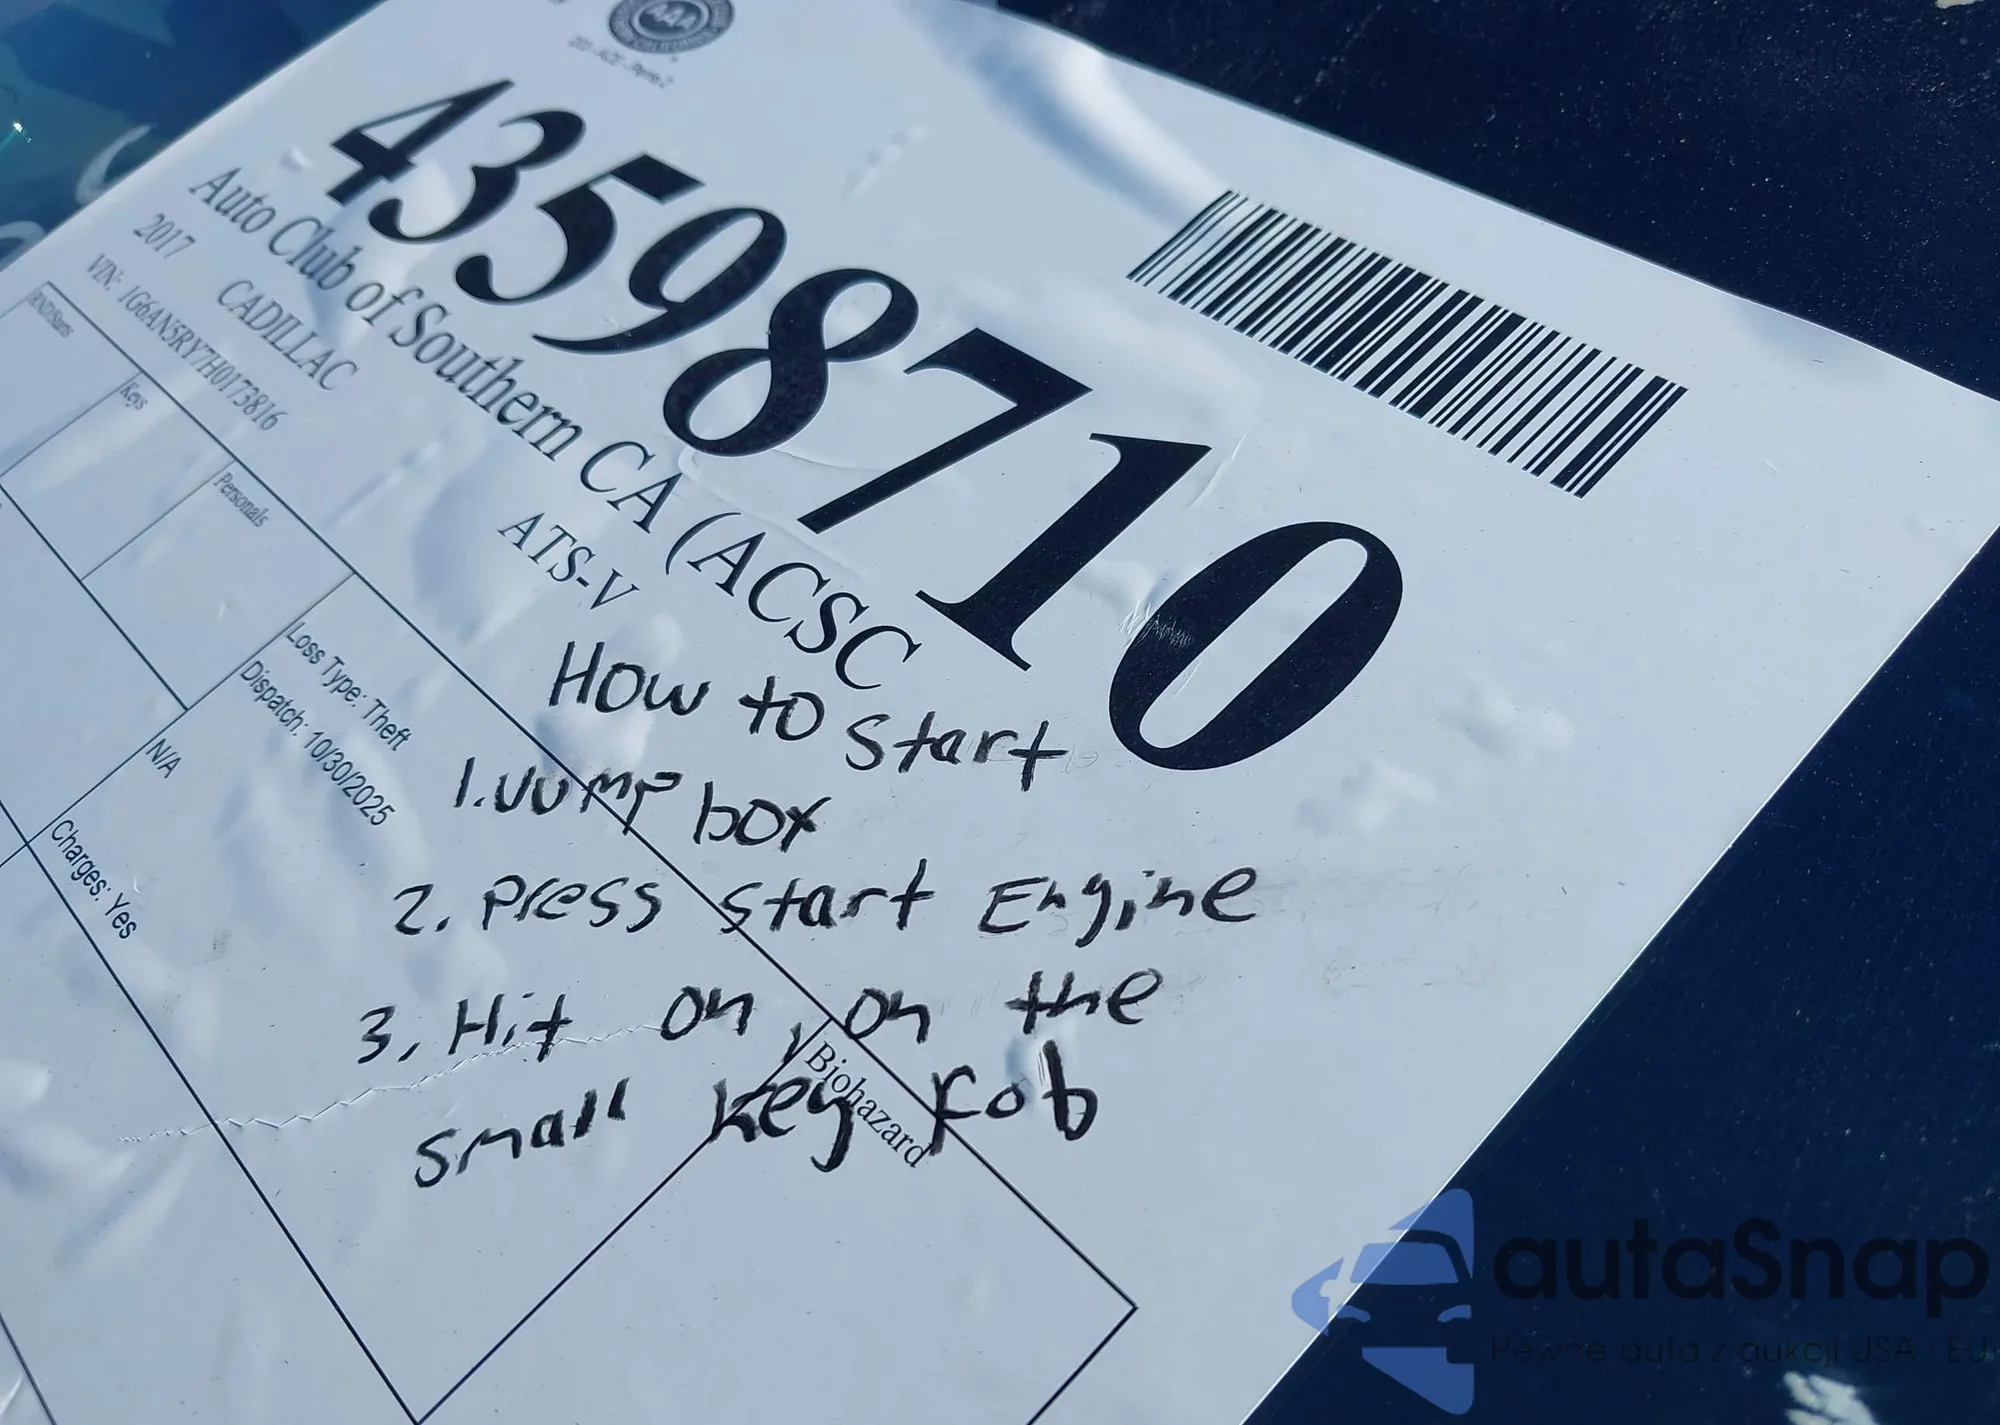 AAA
43598710
Auto Club of Southern CA (ACSC
2017 CADILLAC ATS-V
VIN: 1G6AN5RY7H0173816
Keys
Personals
Loss Type: Theft
Dispatch: 10/30/2025
N/A
Charges: Yes
Biohazard
How to start
1. Jump box
2. Press start Engine
3. Hit on, on the
small key fob
autaSnap
Pewne auta z aukcji USA i EU